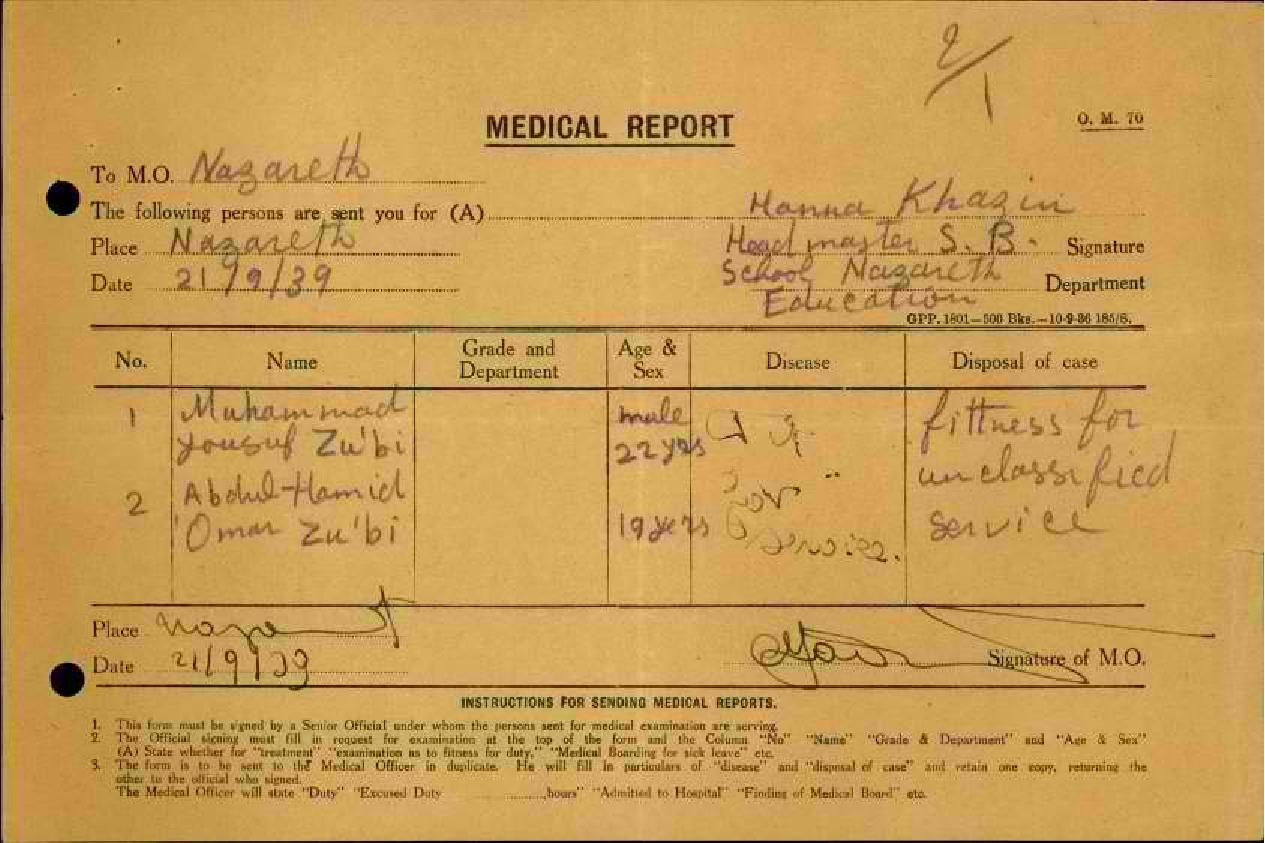 2/1
MEDICAL REPORT
O. M. 70
To M.O. Nazareth
The following persons are sent you for (A) Hanna Khazin
Place Nazareth Headmaster S. B. Signature
Date 21/9/39 School Nazareth Department
Education
GPP. 1801—500 Bks.—10-9-36 185/6.
No. Name Grade and Department Age & Sex Disease Disposal of case
1 Muhammad male fittness for
Yousuf Zu'bi 22 yrs unclassified
2 Abdul-Hamid for service
'Omar Zu'bi 19 yers service.
Place
Date 21/9/39 Signature of M.O.
INSTRUCTIONS FOR SENDING MEDICAL REPORTS.
1. This form must be signed by a Senior Official under whom the persons sent for medical examination are serving.
2. The Official signing must fill in request for examination at the top of the form and the Column "No" "Name" "Grade & Department" and "Age & Sex"
(A) State whether for "treatment" "examination as to fitness for duty," "Medical Boarding for sick leave" etc.
3. The form is to be sent to the Medical Officer in duplicate. He will fill in particulars of "disease" and "disposal of case" and retain one copy, returning the
other to the official who signed.
The Medical Officer will state "Duty" "Excused Duty ............hours" "Admitted to Hospital" "Finding of Medical Board" etc.